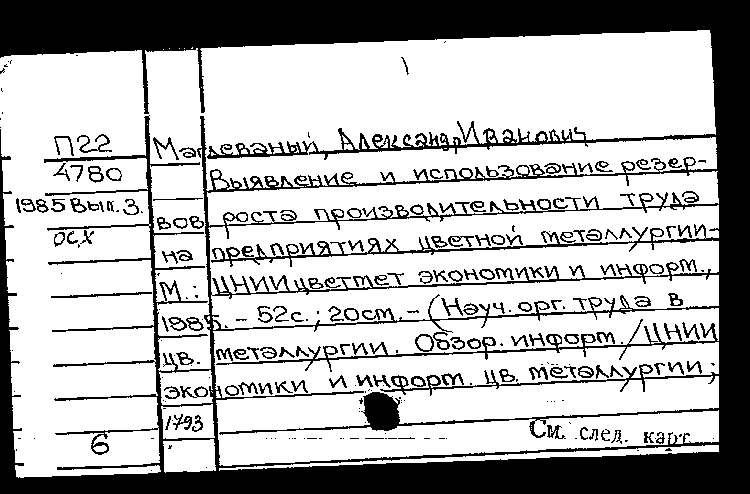 П22
4780
1985 Вып. 3.
осх
6
Маглеваный, Александр Иванович
Выявление и использование резер-
вов роста производительности труда
на предприятиях цветной металлургии-
М.: ЦНИИцветмет экономики и информ.,
1985. - 52с.; 20см. - (Науч. орг. труда в
цв. металлургии. Обзор. информ. / ЦНИИ
экономики и информ. цв. металлургии;
1793
См. след. карт